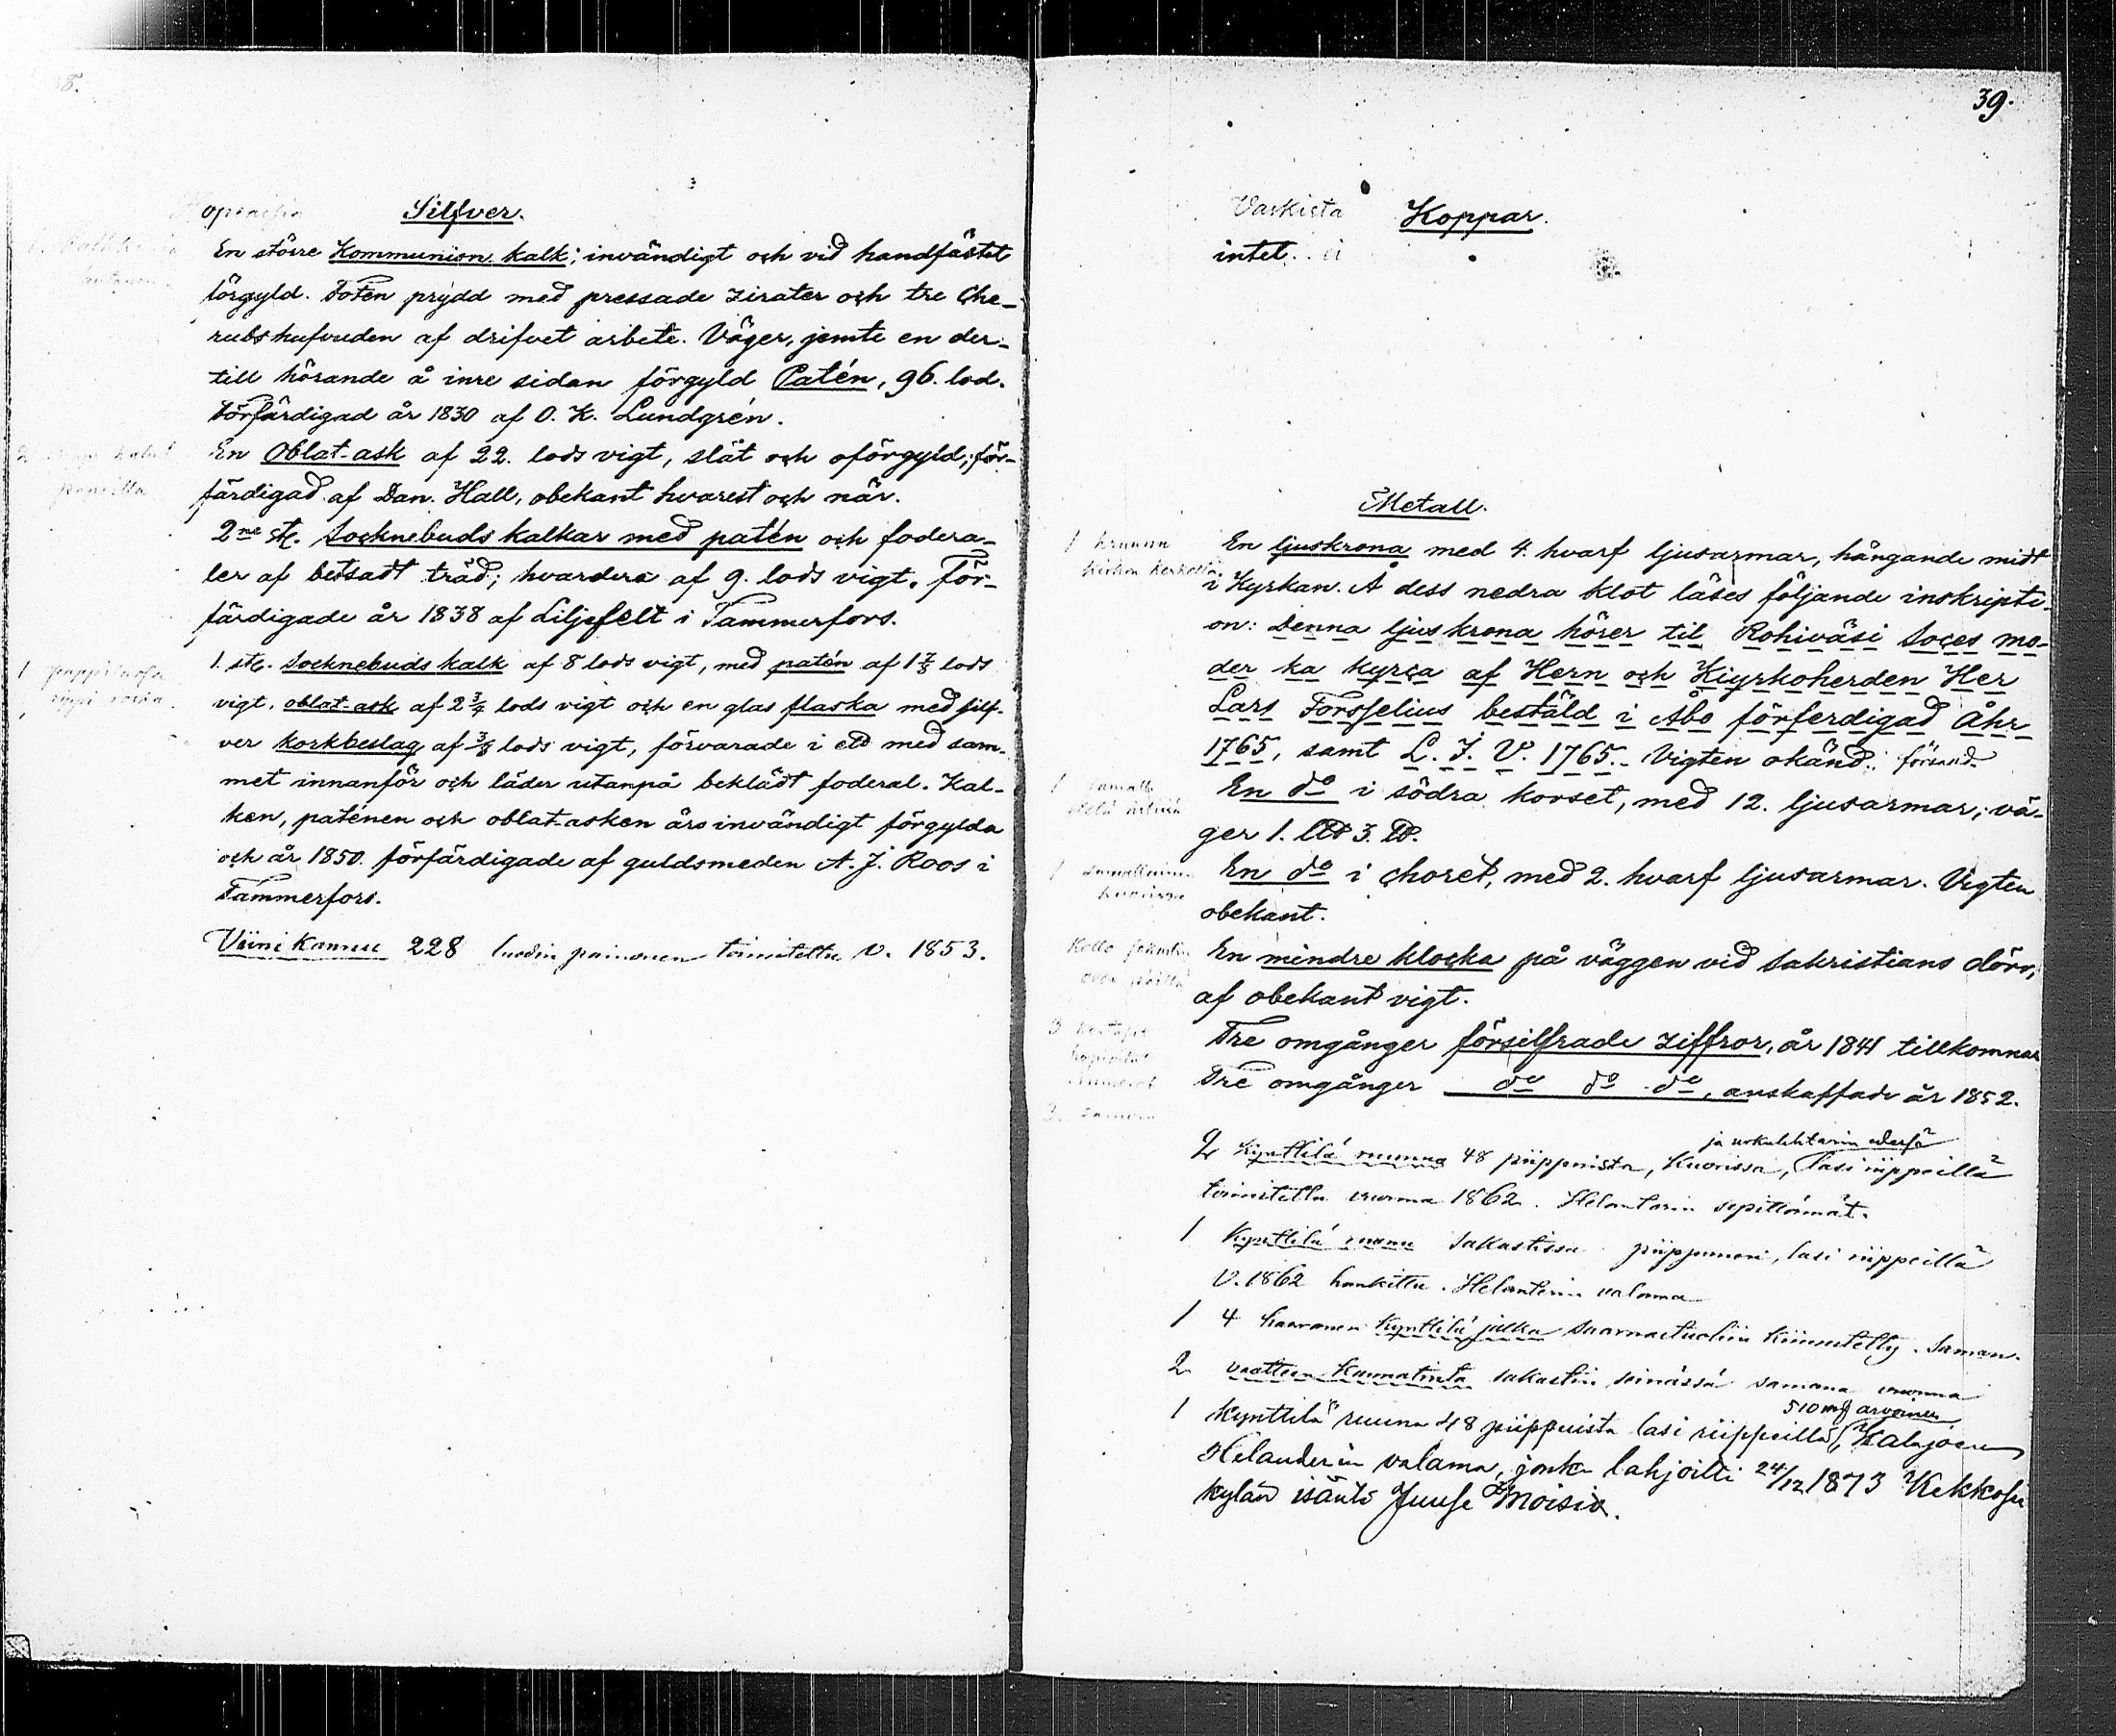 Silfver.
En större Kommunion kalk; invändigt och vid handfästet
förgyld. Foten prydd med pressade zirater och tre Che-
rubshufvuden af drifvet arbete. Väger, jemte en der-
till hörande å inre sidan förgyld Patén, 96. lod.
Förfärdigad år 1830 af O. K. Lundgrén.
En Oblat-ask af 22. lods vigt, slät och oförgyld; för-
färdigad af Dan. Hall, obekant hvarest och när.
2ne st. Socknebuds kalkar med patén och fodera-
ler af betsadt träd; hvardera af 9. lods vigt. För-
färdigade år 1838 af Liljefelt i Tammerfors.
1 pappi
1. st. Socknebuds kalk af 8 lods vigt, med patén af 1 7/8 lods
vigt, oblat-ask af 2 3/4 lods vigt och en glas flaska med silf-
ver korkbeslag af 3/8 lods vigt, förvarade i ett med sam-
met innanför och läder utanpå beklädt foderal. Kal-
ken, paténen och oblat-asken äro invändigt förgylda
och år 1850. förfärdigade af guldsmeden A. J. Roos i
Tammerfors.
Viini kannu 228 luodin painonen toimitettu v. 1853.
39.
Vaskista Koppar.
intet. ei
Metall.
1 kruunu
En ljuskrona med 4. hvarf ljusarmar, hängande midt
i Kyrkan. Å dess nedra klot läses följande inskripti-
on: Denna ljus krona hörer til Rohiväsi Soces mo-
der ka kyrca af Hern och Kiyrkoherden Her
Lars Forsselius bestäld i Åbo förferdigad Åhr
1765, samt L. I. V. 1765. Vigten okänd.
En do i södra korset, med 12. ljusarmar; vä-
ger 1. L℔ 3. ℔.
En do i choret, med 2. hvarf ljusarmar. Vigten
obekant.
En mindre klocka på väggen vid Sakristians dörr,
af obekant vigt.
Tre omgånger försilfrade Ziffror, år 1841 tillkomna
Tre omgånger do do do, anskaffade år 1852.
ja urkulehtarin edessä
2 Kynttilä ruunua 48 piippuista, Kuorissa, lasi riippeillä
toimitettu vuonna 1862. Helanterin sepittämät.
1 Kynttilä ruunu Sakastissa piippunen, lasi riippeillä
V. 1862 hankittu. Helanterin valama
1 4 haaranen Kynttilä jalka Saarnastuoliin kiinnitetty. Saman.
2 vaatteen kannatinta sakastin seinässä samana vuonna
510 mk arvoinen
1 Kynttilä ruunu 48 piippuista lasi riippeillä, Kalajoen
Helanderin valama, jonka lahjoitti 24/12 1873 Kekkosen
kylän isäntä Juuse Moisio.